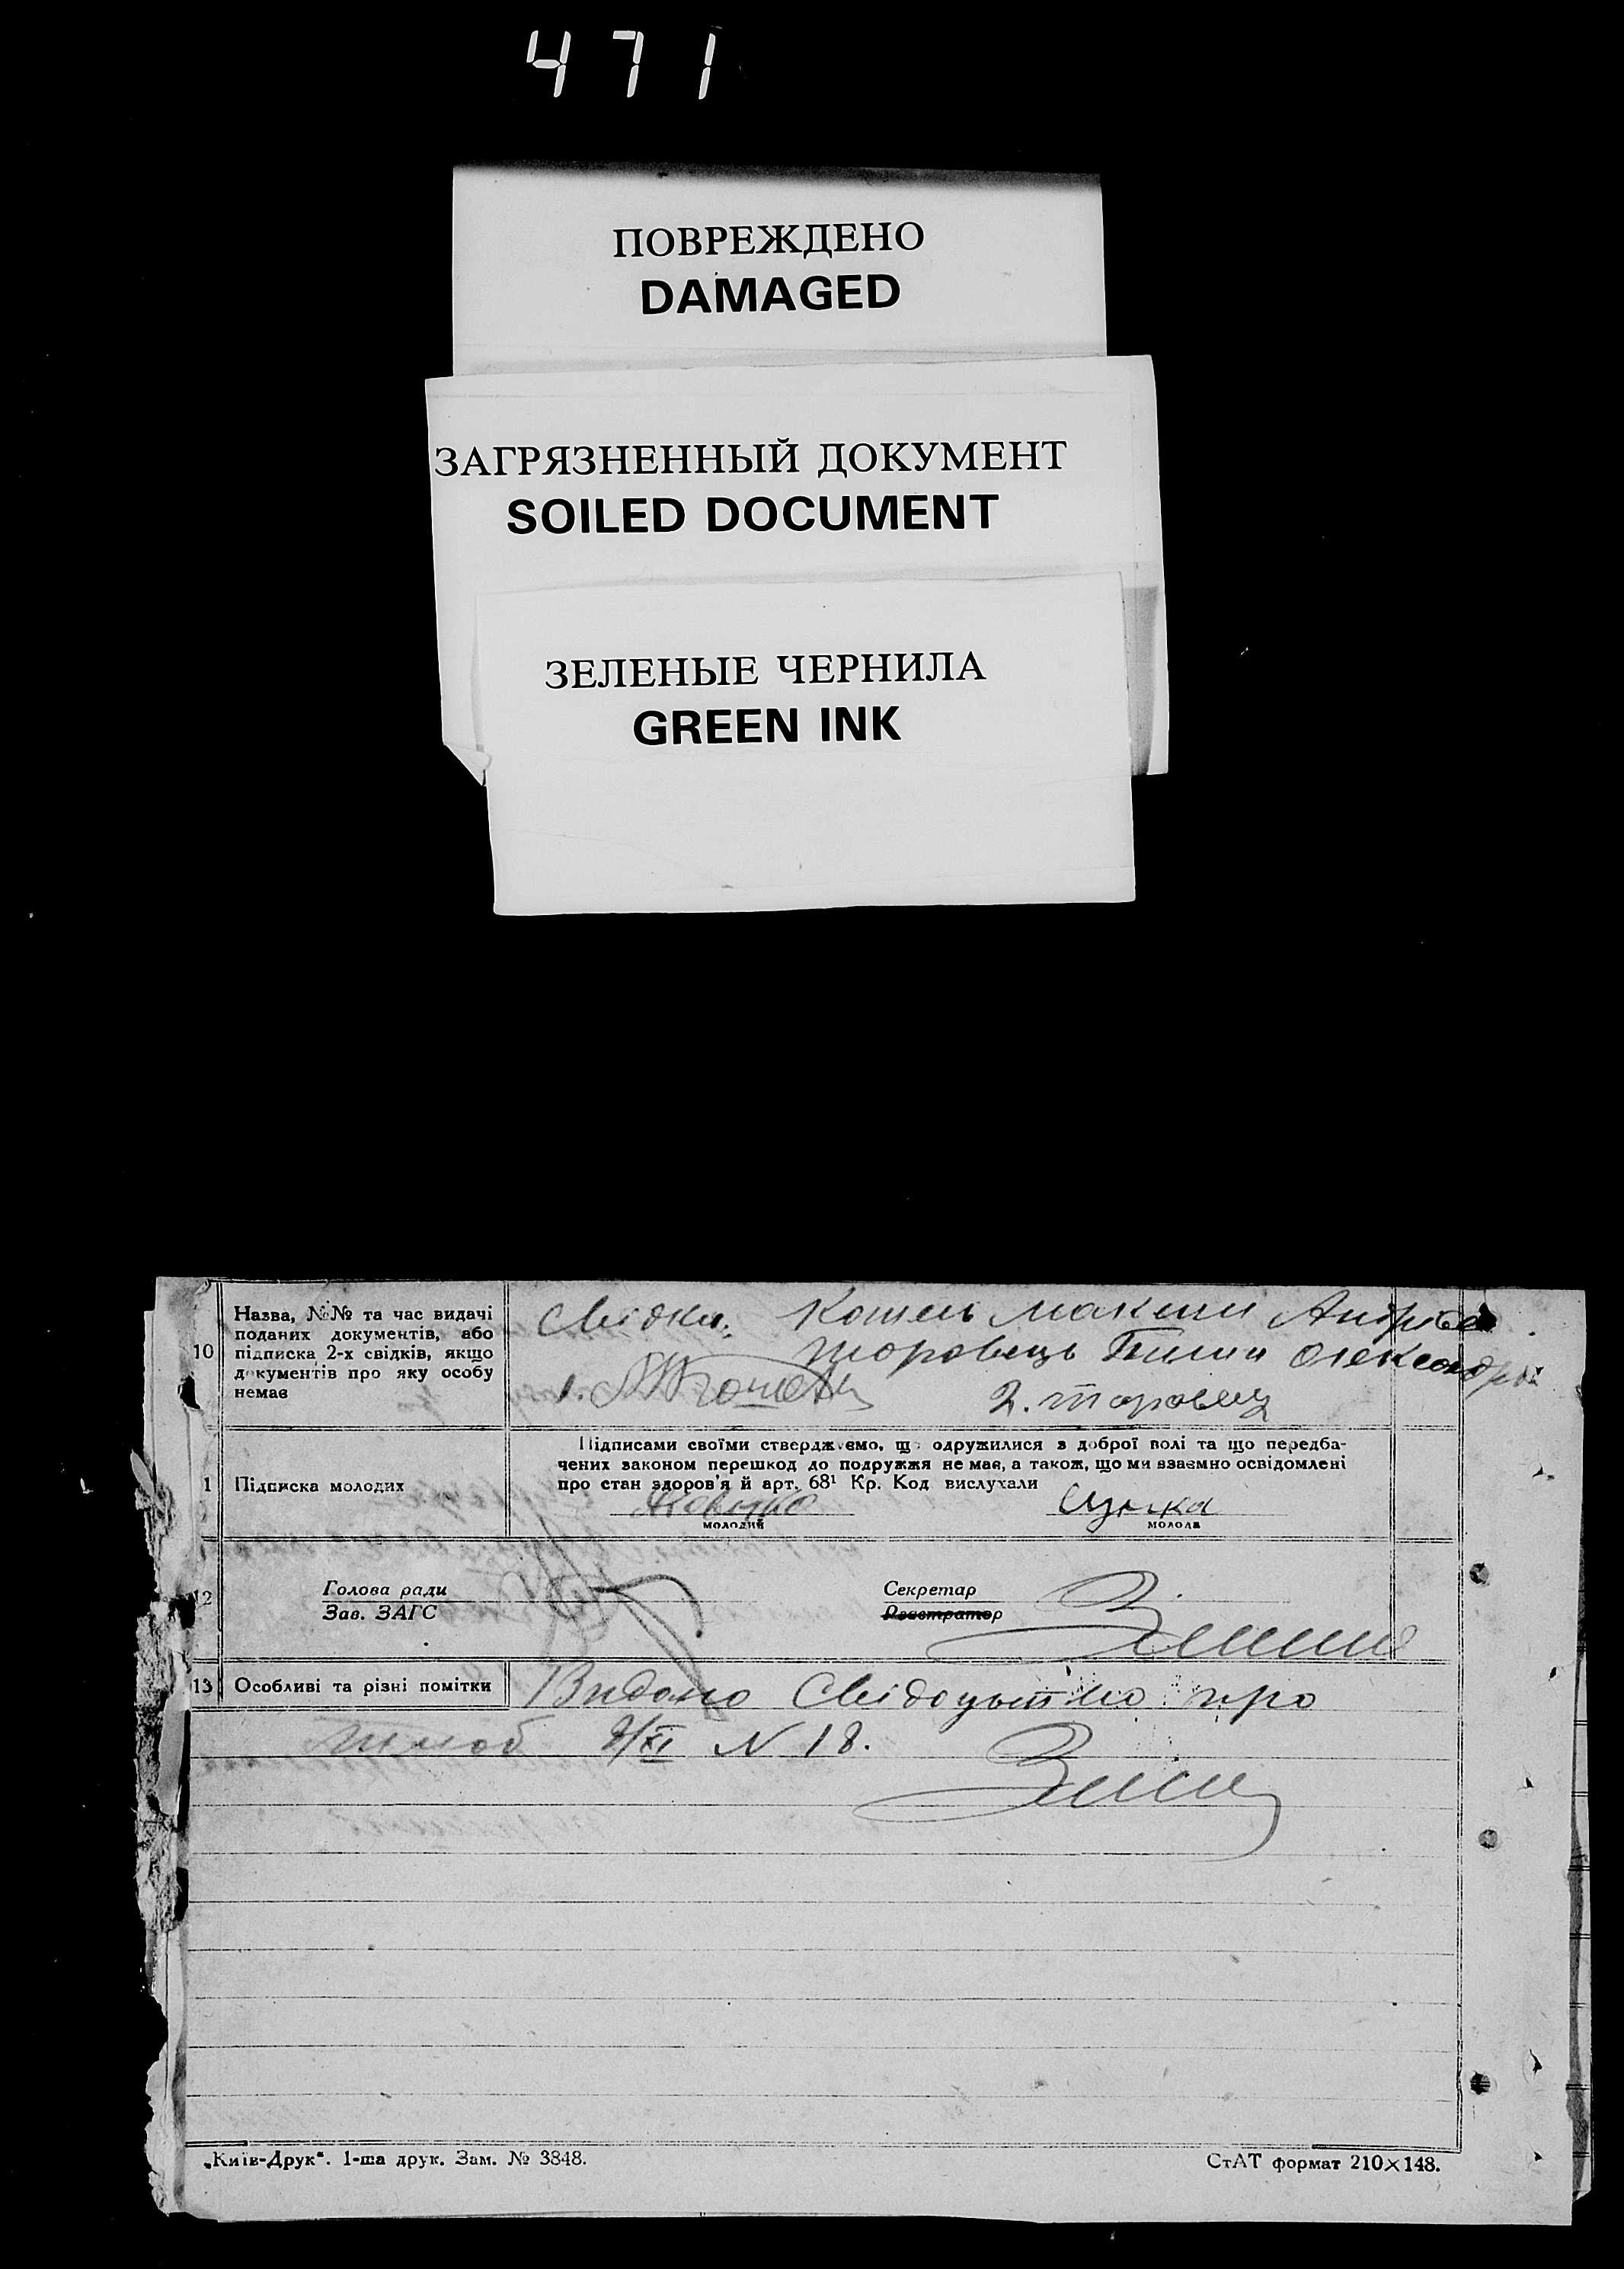 471
ПОВРЕЖДЕНО
DAMAGED
ЗАГРЯЗНЕННЫЙ ДОКУМЕНТ
SOILED DOCUMENT
ЗЕЛЕНЫЕ ЧЕРНИЛА
GREEN INK
10
Назва, №№ та час видачі
поданих документів, або
підписка 2-х свідків, якщо
документів про яку особу
немає
Свідки:
2.
1
Підписка молодих
Підписами своїми стверджуємо, що одружилися з доброї волі та що передба-
чених законом перешкод до подружжя не має, а також, що ми взаємно освідомлені
про стан здоров'я й арт. 68¹ Кр. Код вислухали
молодий
молода
12
Голова ради
Зав. ЗАГС
Секретар
Реєстратор
13
Особливі та різні помітки
Видано Свідоцтво про
шлюб 8/XI N 18.
„Київ-Друк“. 1-ша друк. Зам. № 3848.
СтАТ формат 210×148.